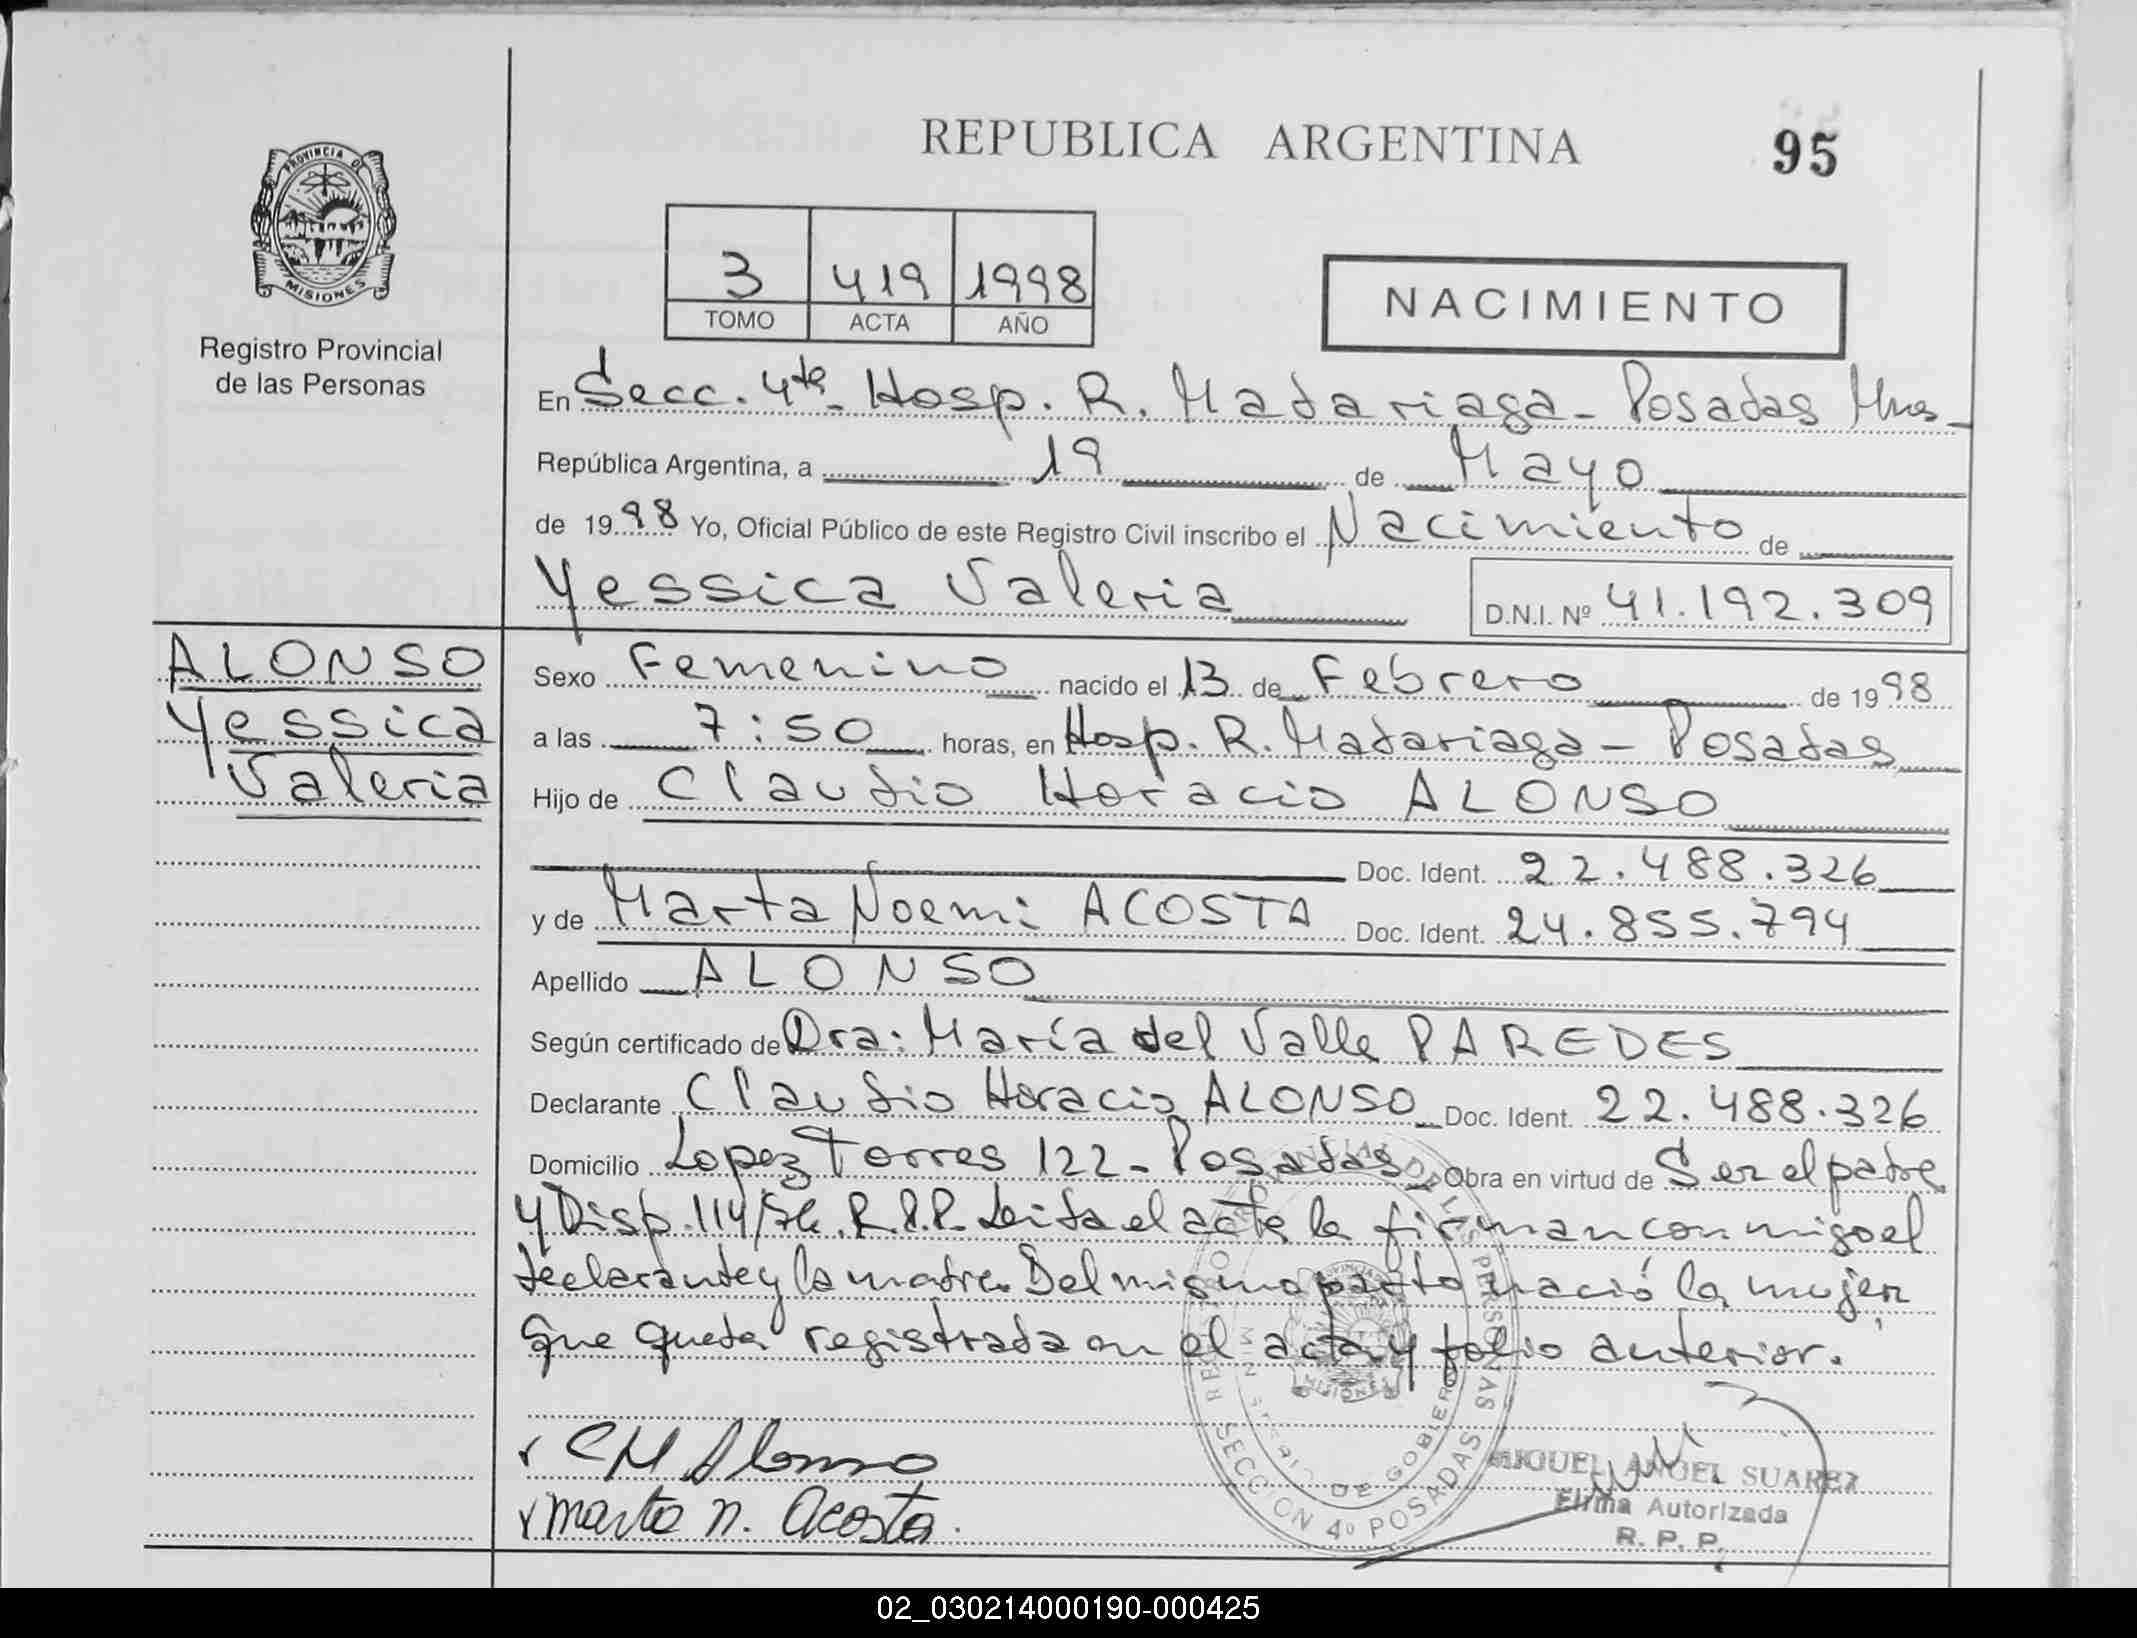 REPUBLICA ARGENTINA
95
PROVINCIA DE
MISIONES
Registro Provincial
de las Personas
3 419 1998
TOMO ACTA AÑO
NACIMIENTO
En Secc. 4ta. Hosp. R. Madariaga - Posadas Mnes
República Argentina, a 19 de Mayo
de 1998 Yo, Oficial Público de este Registro Civil inscribo el Nacimiento de
Yessica Valeria D.N.I. Nº 41.192.309
ALONSO
Yessica
Valeria
Sexo Femenino nacido el 13 de Febrero de 1998
a las 7:50 horas, en Hosp. R. Madariaga - Posadas
Hijo de Claudio Horacio ALONSO
Doc. Ident. 22.488.326
y de Marta Noemi ACOSTA Doc. Ident. 24.855.794
Apellido ALONSO
Según certificado de Dra: María del Valle PAREDES
Declarante Claudio Horacio ALONSO Doc. Ident. 22.488.326
Domicilio Lopez Torres 122 - Posadas Obra en virtud de Ser el padre
y Disp. 114/ R.P.P. Leida el acta la firman conmigo el
declarante y la madre. Del mismo parto nació la mujer
que queda registrada en el acta y folio anterior.
Alonso
Marta n. Acosta.
SECCION 4º POSADAS
DE GOBIERNO
MISIONES
MIGUEL ANGEL SUAREZ
Firma Autorizada
R. P. P.
02_030214000190-000425